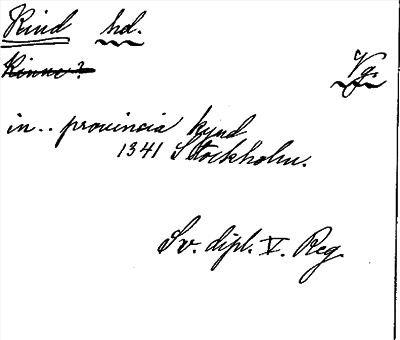 Kind hd.
Kinne?
Vg.
in.. provincia kynd
1341 Stockholm.
Sv. dipl. V. Reg.